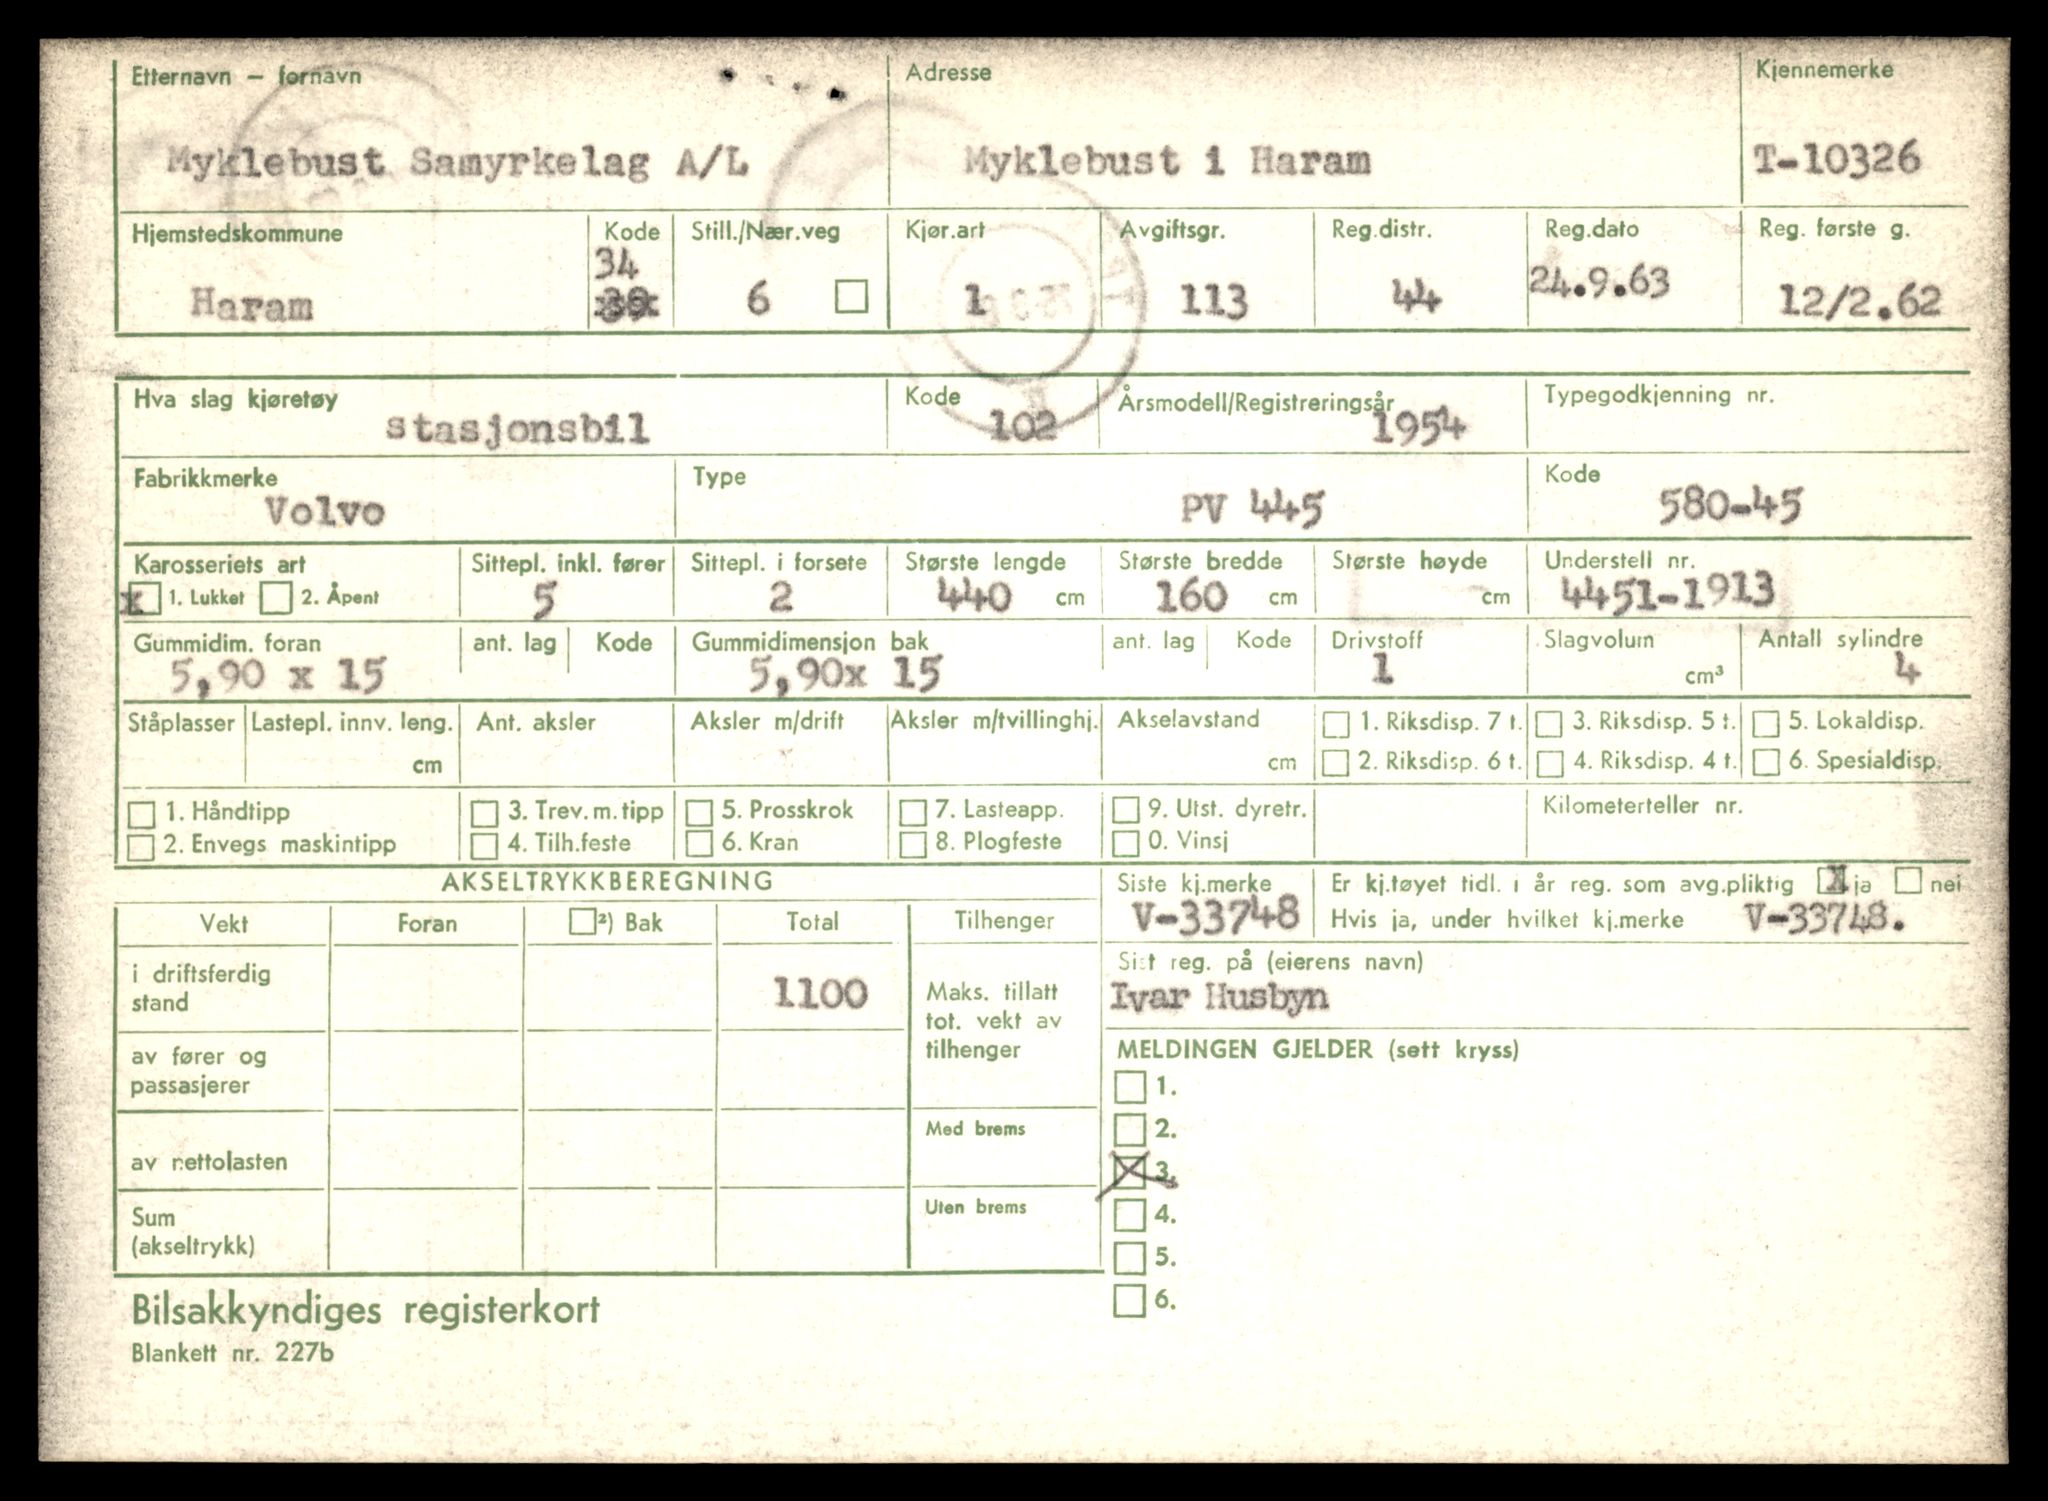 Etternavn – fornavn Adresse Kjennemerke
Myklebust Samyrkelag A/L Myklebust i Haram T-10326
Hjemstedskommune Kode Still./Nær.veg Kjør.art Avgiftsgr. Reg.distr. Reg.dato Reg. første g.
34
Haram 39 6 1 113 44 24.9.63 12/2.62
Hva slag kjøretøy Kode Årsmodell/Registreringsår Typegodkjenning nr.
stasjonsbil 102 1954
Fabrikkmerke Type Kode
Volvo PV 445 580-45
Karosseriets art Sittepl. inkl. fører Sittepl. i forsete Største lengde Største bredde Største høyde Understell nr.
x 1. Lukket 2. Åpent 5 2 440 cm 160 cm cm 4451-1913
Gummidim. foran ant. lag Kode Gummidimensjon bak ant. lag Kode Drivstoff Slagvolum Antall sylindre
5,90 x 15 5,90x 15 1 cm³ 4
Ståplasser Lastepl. innv. leng. Ant. aksler Aksler m/drift Aksler m/tvillinghj. Akselavstand 1. Riksdisp. 7 t. 3. Riksdisp. 5 t. 5. Lokaldisp.
cm cm 2. Riksdisp. 6 t. 4. Riksdisp. 4 t. 6. Spesialdisp.
1. Håndtipp 3. Trev. m. tipp 5. Prosskrok 7. Lasteapp. 9. Utst. dyretr. Kilometerteller nr.
2. Envegs maskintipp 4. Tilh.feste 6. Kran 8. Plogfeste 0. Vinsj
AKSELTRYKKBEREGNING Siste kj.merke Er kj.tøyet tidl. i år reg. som avg.pliktig x ja nei
V-33748 Hvis ja, under hvilket kj.merke V-33748.
Vekt Foran ²) Bak Total Tilhenger
Sist reg. på (eierens navn)
i driftsferdig stand 1100 Maks. tillatt tot. vekt av tilhenger
Ivar Husbyn
av fører og passasjerer
MELDINGEN GJELDER (sett kryss)
1.
Med brems 2.
av nettolasten X 3.
Sum (akseltrykk) Uten brems 4.
5.
Bilsakkyndiges registerkort 6.
Blankett nr. 227b